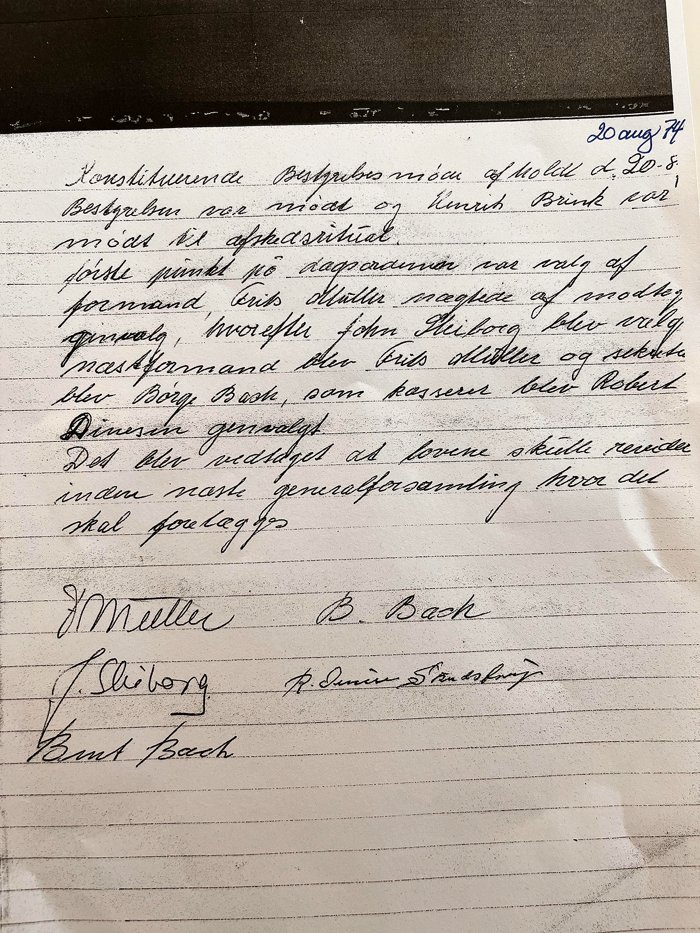 20 aug 74
Konstituerende Bestyrelsesmøde afholdt d. 20-8
Bestyrelsen var mødt og Henrik Brink var
mødt til afskedsritual.
første punkt på dagsordenen var valg af
formand, Frits Müller nægtede af modtag
genvalg, hvorefter John Skiborg blev valg
næstformand blev Frits Müller og sekretæ
blev Børge Bach, som kasserer blev Robert
Dinesen genvalgt
Det blev vedtaget at lovene skulle revider
inden næste generalforsamling hvor det
skal forelægges
F Müller B. Bach
J. Skiborg R. Dinesen
Bent Bach